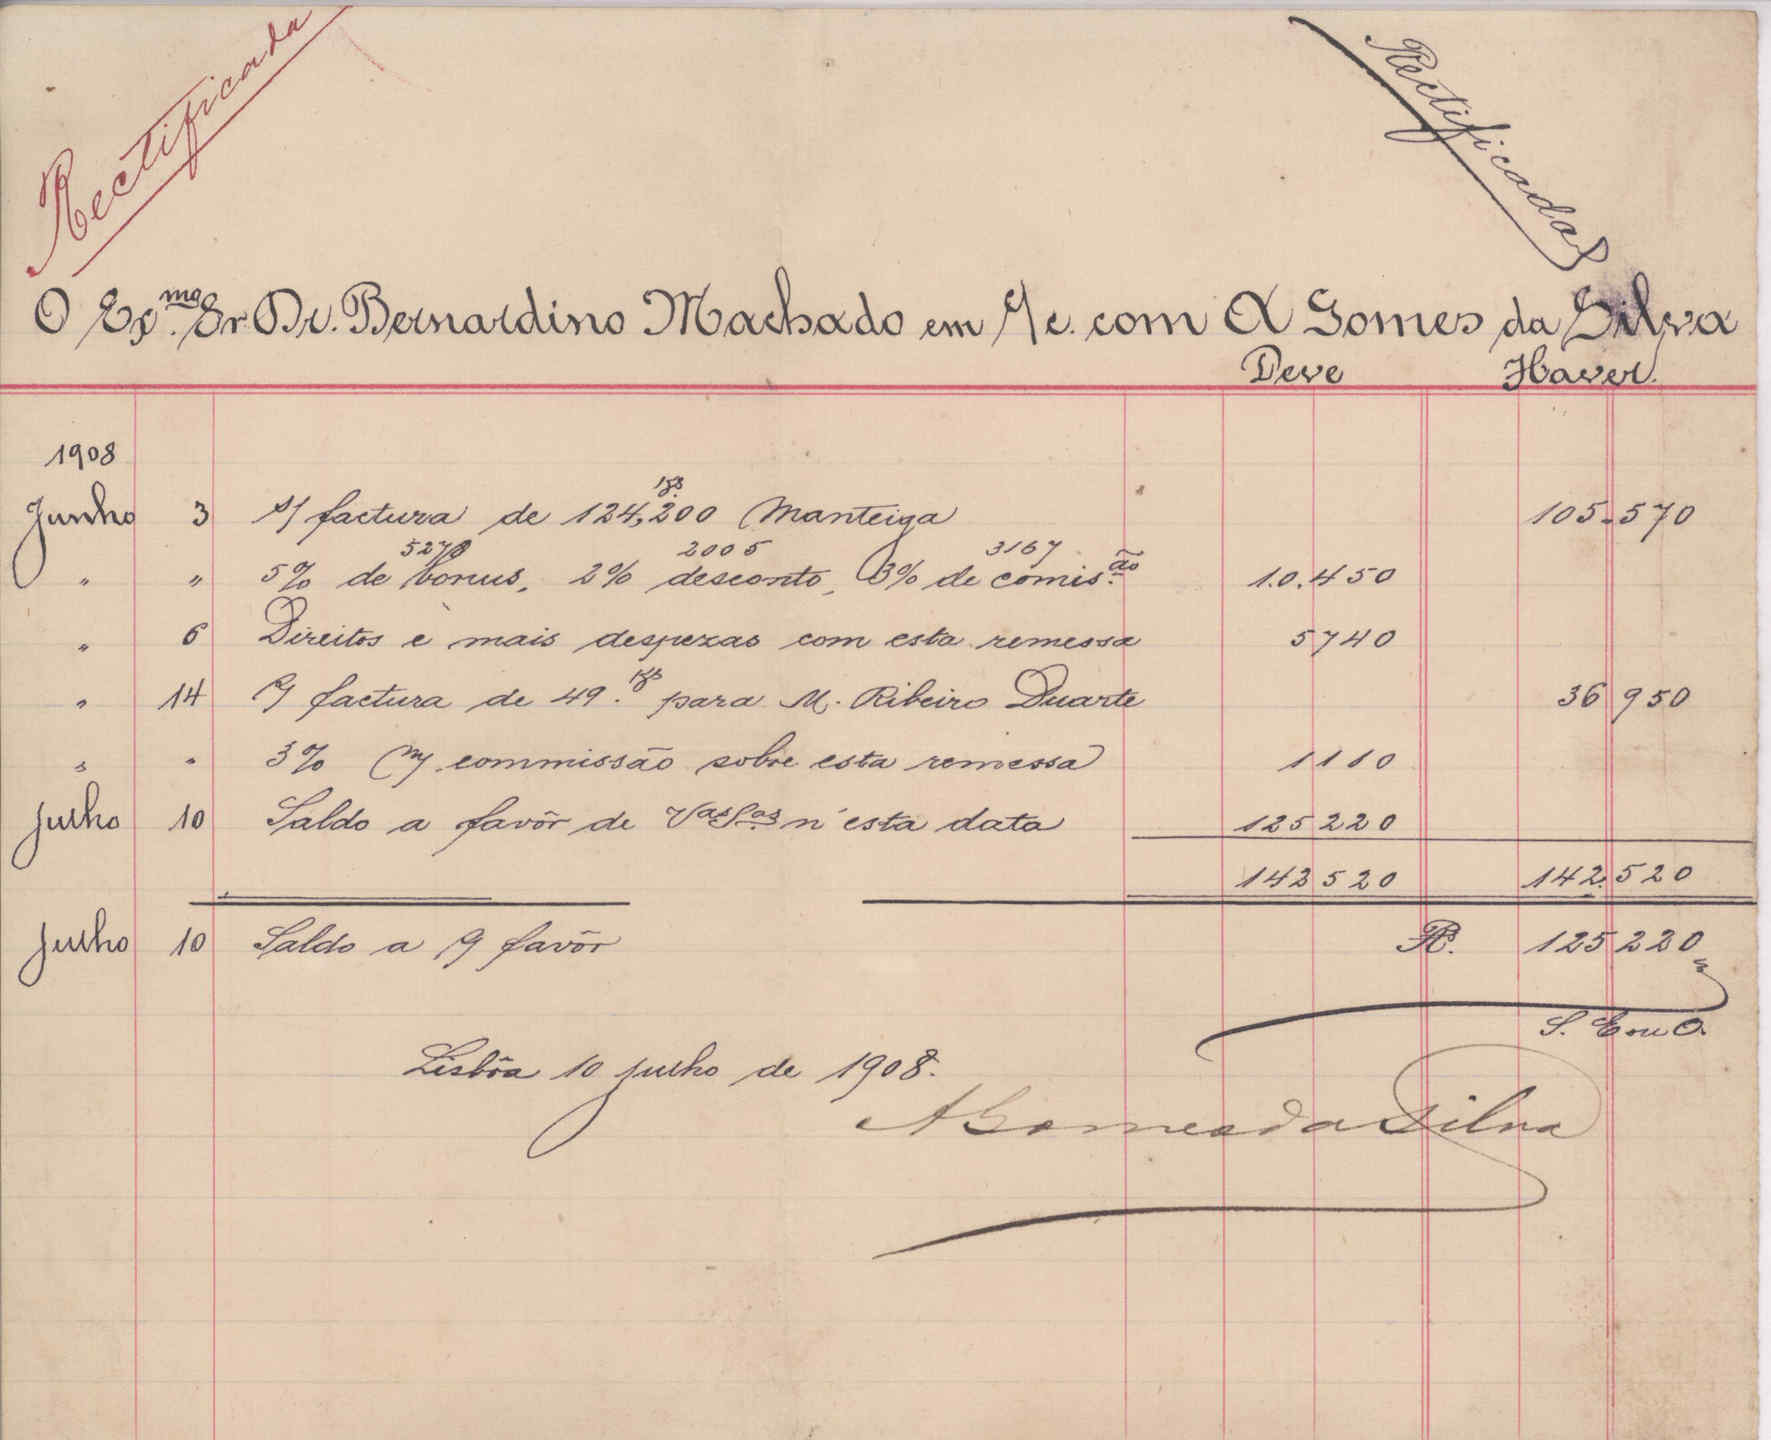 Rectificada
Rectificada
O Ex.mo Sr. Dr. Bernardino Machado em c/c. com A Gomes da Silva
Deve Haver
1908
Junho 3 s/ factura de 124,200 kgs Manteiga 105.570
5270 2005 3167
" " 5% de bonus, 2% desconto, 3% de comis.ão 10.450
" 6 Direitos e mais despezas com esta remessa 5740
" 14 s/ factura de 49.kgs para M. Ribeiro Duarte 36 950
" " 3% m/ commissão sobre esta remessa 1110
Julho 10 Saldo a favôr de Vas Sas n'esta data 125 220
142 520 142.520
Julho 10 Saldo a s/ favôr Rs. 125 220
S. E ou O.
Lisbôa 10 julho de 1908.
A Gomes da Silva